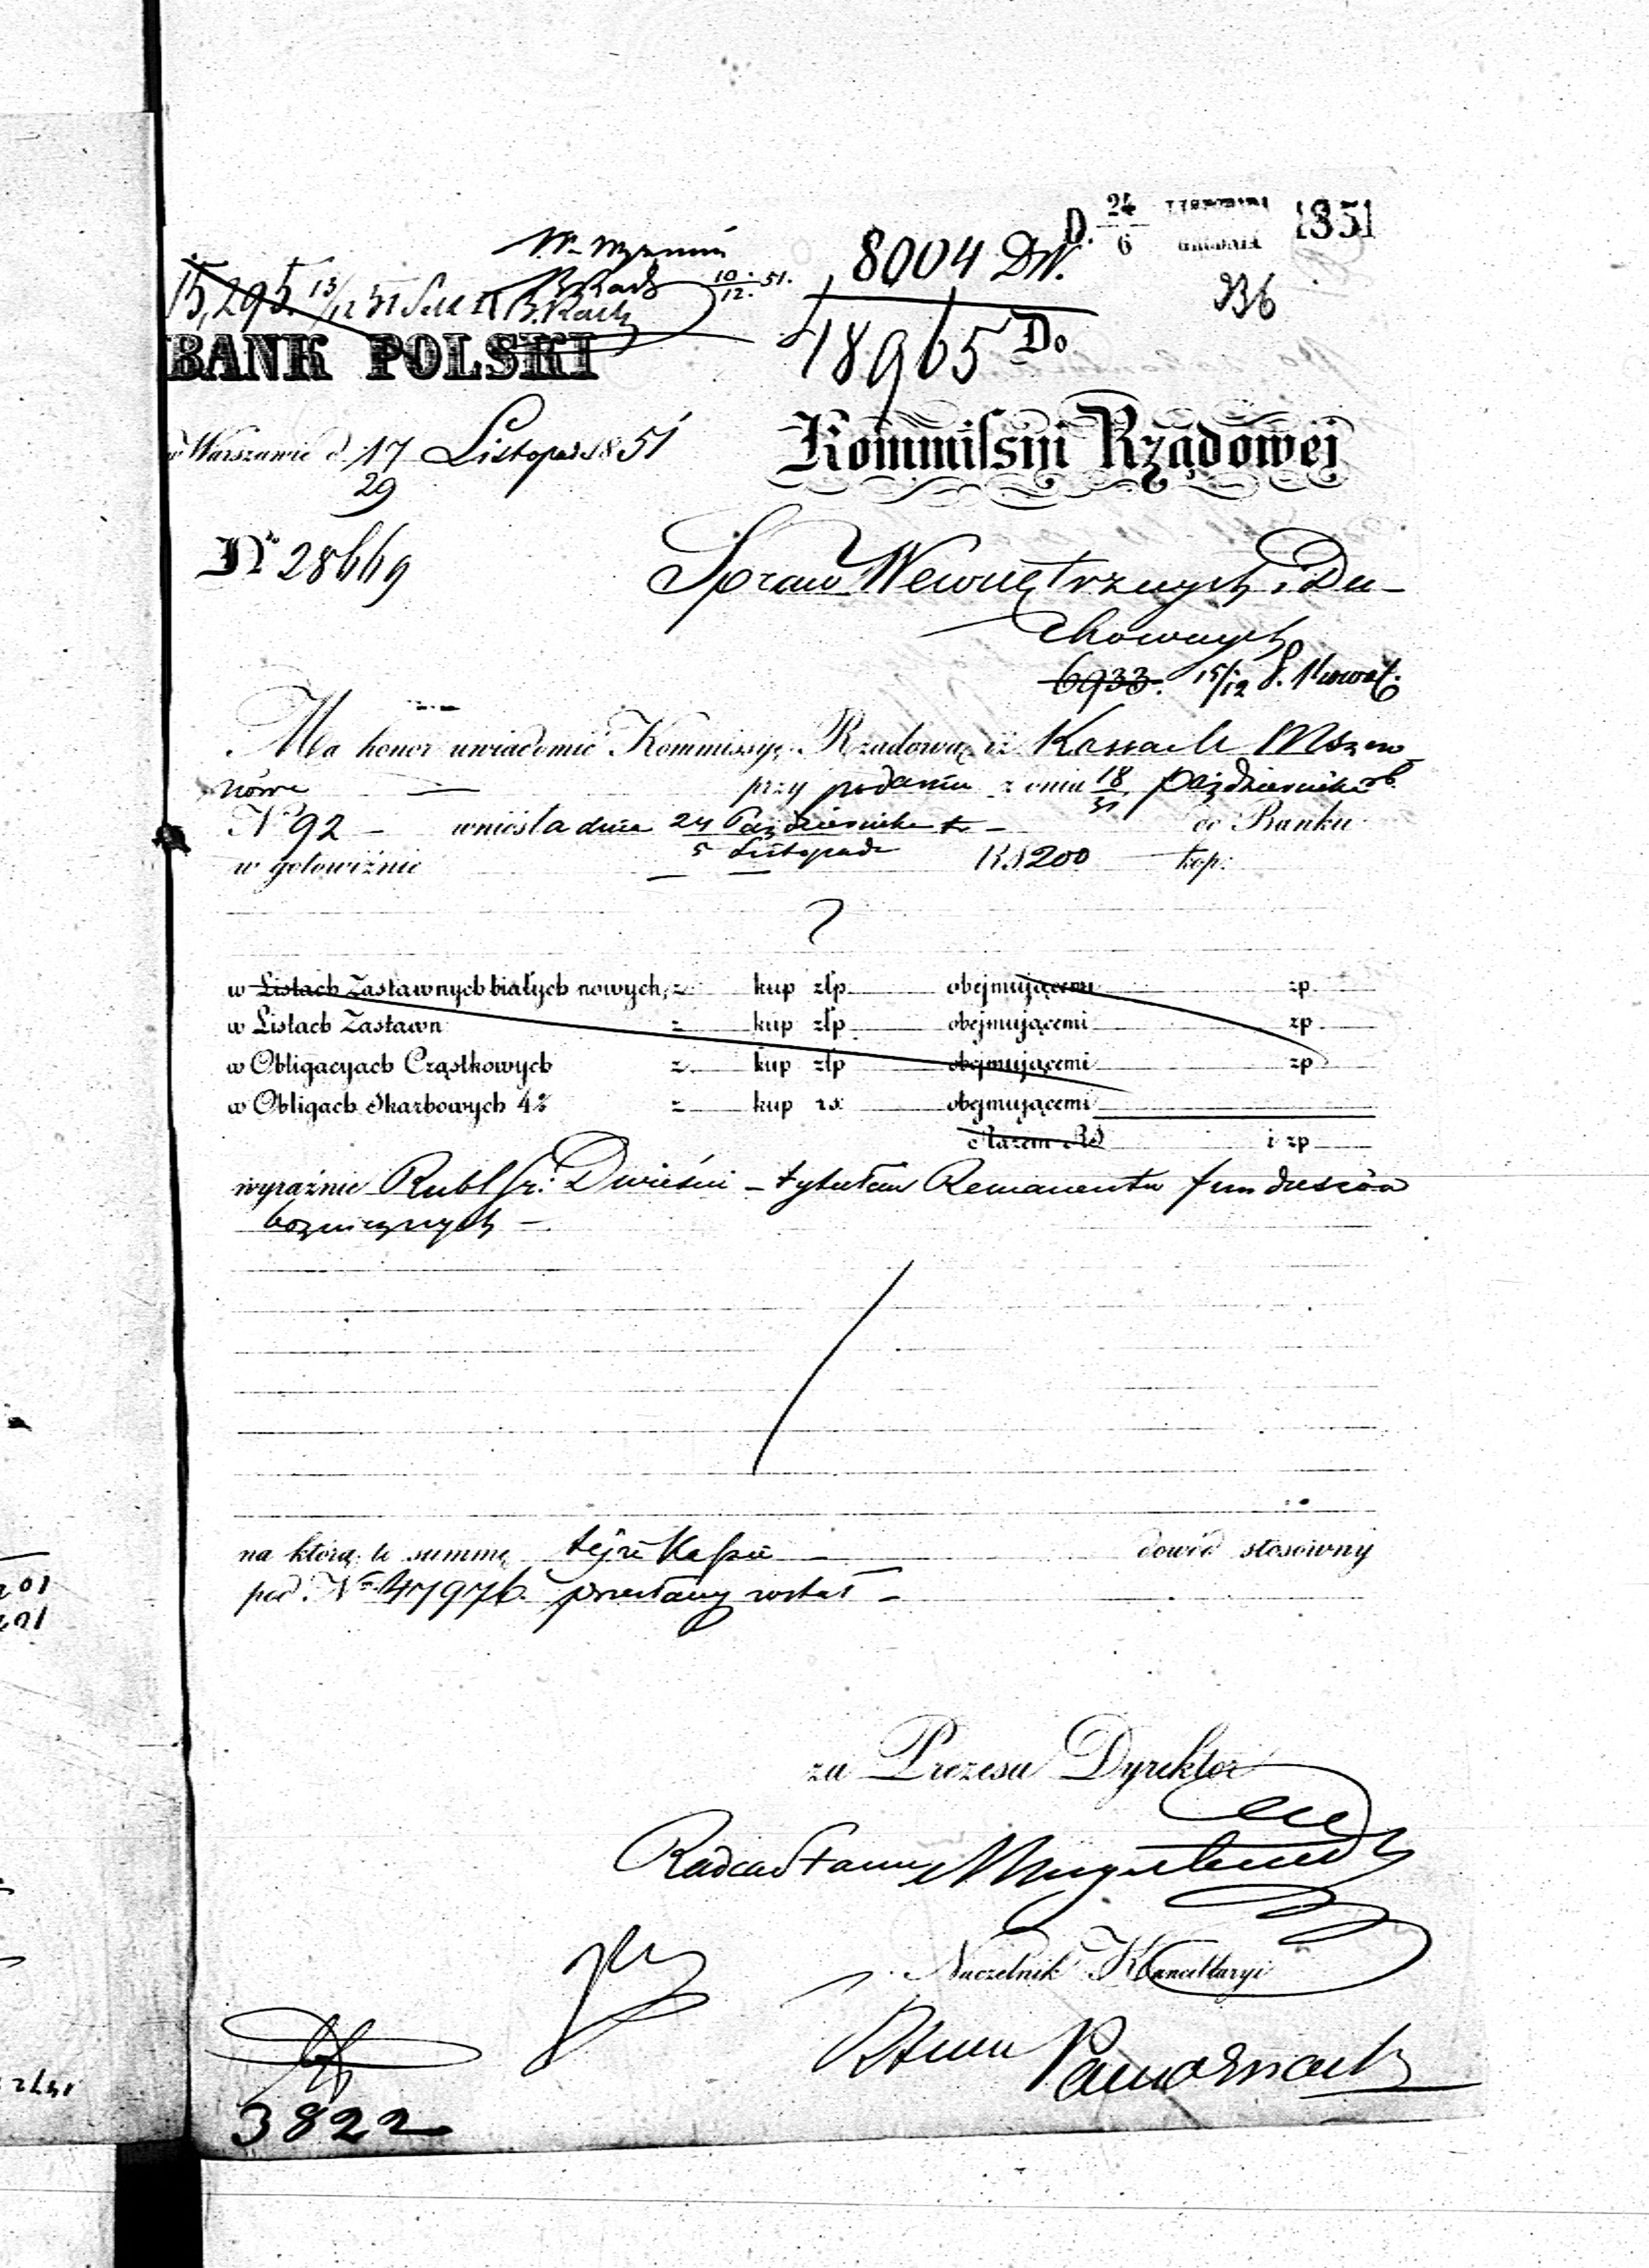 D. 24/6 GRUDNIA 1851
8004 DW.
336
15,295 13/12 51
10/12 51.
18965 Do
BANK POLSKI
w Warszawie d. 17/29 Listopad 1851
Kommissyi Rządowej
No 28669
Spraw Wewnętrznych i Du-
chownych
6933. 15/12
Ma honor uwiadomić Kommissyę Rządową, iż Kassa M.
przy podaniu z dnia 18 Październik rb.
No 92 - wniosła dnia 24 Październik - do Banku
5 Listopad
w gotowiźnie RS 200 kop:
w Listach Zastawnych białych nowych, z kup złp obejmującemi zp.
w Listach Zastawn z kup złp obejmującemi zp.
w Obligacyach Cząstkowych z kup złp obejmującemi zp
w Obligach Skarbowych 4% z kup rs: obejmującemi
Razem RS i zp
wyraźnie Rubl sr: Dwieście - tytułem Remanentu funduszów
bożniczych -
na którą tę summę tejże Kassie dowód stosowny
pod No 47976. przesłany został -
za Prezesa Dyrektor
Radca Stanu
Naczelnik Kancellaryi
3822